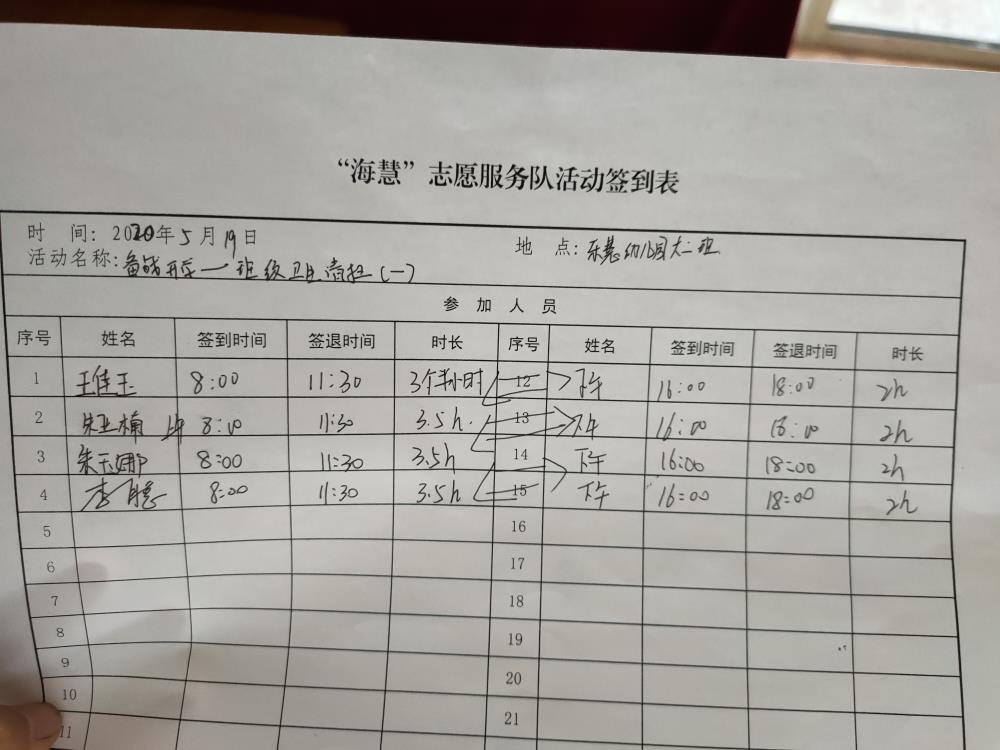 “海慧”志愿服务队活动签到表
时 间: 2020年5月19日 地 点: 东慧幼儿园大二班
活动名称: 备战开学一班级卫生清扫(一)
参 加 人 员
序号 姓名 签到时间 签退时间 时长 序号 姓名 签到时间 签退时间 时长
1 王佳玉 8:00 11:30 3个半小时 12 下午 16:00 18:00 2h
2 朱亚楠 8:00 11:30 3.5h. 13 下午 16:00 18:00 2h
3 朱玉娜 8:00 11:30 3.5h 14 下午 16:00 18:00 2h
4 李 8:00 11:30 3.5h 15 下午 16:00 18:00 2h
5 16
6 17
7 18
8 19
9 20
10 21
11